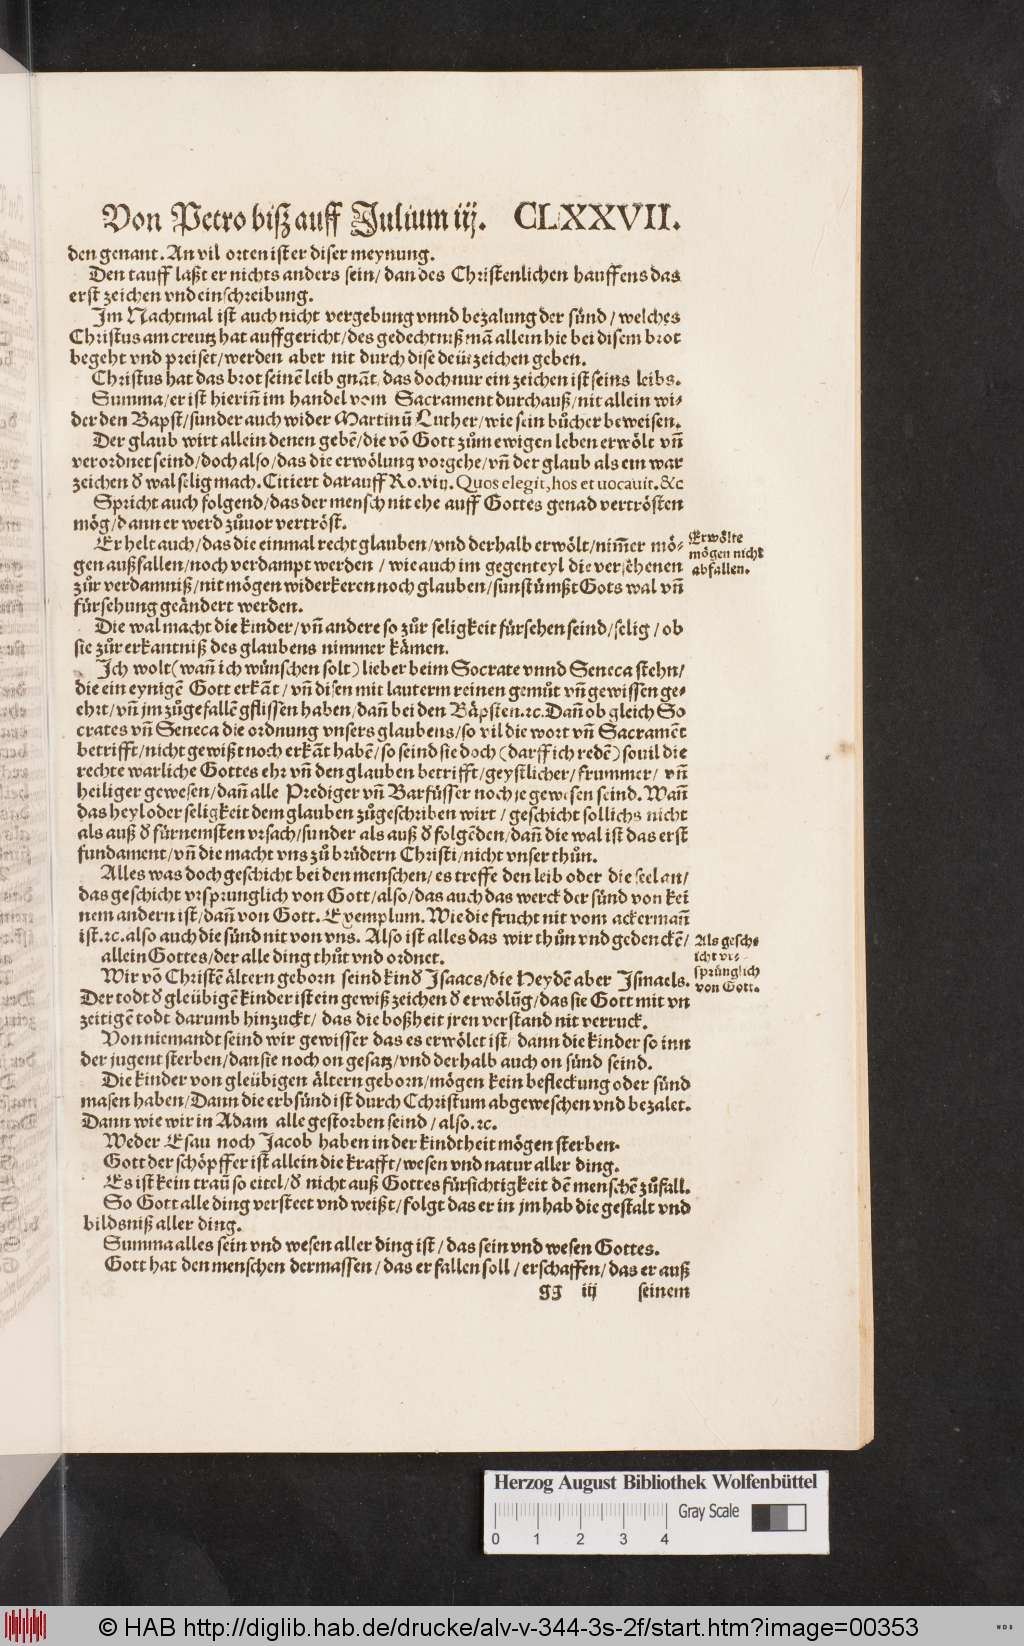 Von Petro biß auff Julium iij. CLXXVII.
den genant. An vil orten ist er diser meynung.
Den tauff laßt er nichts anders sein/ dan des Christenlichen hauffens das
erst zeichen vnd einschreibung.
Im Nachtmal ist auch nicht vergebung vnnd bezalung der sünd / welches
Christus am creutz hat auffgericht/des gedechtniß mā allein hie bei disem brot
begeht vnd preiset/werden aber nit durch dise deützeichen geben.
Christus hat das brot seinē leib gnāt/das doch nur ein zeichen ist seins leibs.
Summa/er ist hierin̄ im handel vom Sacrament durchauß/nit allein wi⸗
der den Bapst/sunder auch wider Martinū Luther/wie sein bůcher beweisen.
Der glaub wirt allein denen gebē/die vō Gott zům ewigen leben erwölt vn̄
verordnet seind/doch also/das die erwölung vorgehe/vn̄ der glaub als ein war
zeichen d̄ wal selig mach. Citiert darauff Ro.viij. Quos elegit, hos et uocauit. &c
Spricht auch folgend/das der mensch nit ehe auff Gottes genad vertrösten
mög/dann er werd zůuor vertröst.
Er helt auch/das die einmal recht glauben/vnd derhalb erwölt/nim̄er mö⸗
gen außfallen/noch verdampt werden / wie auch im gegenteyl die versehenen
zůr verdamniß/nit mögen widerkeren noch glauben/sunst müßt Gots wal vn̄
fürsehung geändert werden.
Erwölte
mögen nicht
abfallen.
Die wal macht die kinder/vn̄ andere so zůr seligkeit fürsehen seind/selig / ob
sie zůr erkantniß des glaubens nimmer kämen.
Ich wolt(wan̄ ich wünschen solt) lieber beim Socrate vnnd Seneca stehn/
die ein eynigē Gott erkāt / vn̄ disen mit lauterm reinen gemůt vn̄ gewissen ge⸗
ehrt/vn̄ jm zůgefallē gflissen haben/dan̄ bei den Bäpsten.ꝛc. Dan̄ ob gleich So
crates vn̄ Seneca die ordnung vnsers glaubens/so vil die wort vn̄ Sacramēt
betrifft/nicht gewißt noch erkāt habē/so seind sie doch (darff ich redē) souil die
rechte warliche Gottes ehr vn̄ den glauben betrifft/geystlicher/frummer/ vn̄
heiliger gewesen/dan̄ alle Prediger vn̄ Barfüsser noch je gewesen seind. Wan̄
das heyl oder seligkeit dem glauben zůgeschriben wirt / geschicht sollichs nicht
als auß d̄ fürnemsten vrsach/sunder als auß d̄ folgēden/dan̄ die wal ist das erst
fundament/vn̄ die macht vns zů brüdern Christi/nicht vnser thůn.
Alles was doch geschicht bei den menschen/es treffe den leib oder die seel an/
das geschicht vrsprunglich von Gott/also/das auch das werck der sünd von kei
nem andern ist/dan̄ von Gott. Exemplum. Wie die frucht nit vom ackerman̄
ist.ꝛc. also auch die sünd nit von vns. Also ist alles das wir thůn vnd gedenckē/
allein Gottes/der alle ding thůt vnd ordnet.
Als gesch⸗
icht vr⸗
sprünglich
von Gott.
Wir vō Christē ältern geborn seind kind Isaacs/die Heydē aber Ismaels.
Der todt d̄ gleübigē kinder ist ein gewiß zeichen d̄ erwölūg/das sie Gott mit vn
zeitigē todt darumb hinzuckt/ das die boßheit jren verstand nit verruck.
Von niemandt seind wir gewisser das es erwölet ist/ dann die kinder so inn
der jugent sterben/dan sie noch on gesatz/vnd derhalb auch on sünd seind.
Die kinder von gleübigen ältern geborn/mögen kein befleckung oder sünd
masen haben/Dann die erbsünd ist durch Cchristum abgeweschen vnd bezalet.
Dann wie wir in Adam alle gestorben seind / also.ꝛc.
Weder Esau noch Jacob haben in der kindtheit mögen sterben.
Gott der schöpffer ist allein die krafft/wesen vnd natur aller ding.
Es ist kein traū so eitel/d̄ nicht auß Gottes fürsichtigkeit dē menschē zůfall.
So Gott alle ding versteet vnd weißt/folgt das er in jm hab die gestalt vnd
bildsniß aller ding.
Summa alles sein vnd wesen aller ding ist / das sein vnd wesen Gottes.
Gott hat den menschen dermassen / das er fallen soll / erschaffen/das er auß
gg iij seinem
Herzog August Bibliothek Wolfenbüttel
Gray Scale
0 1 2 3 4
© HAB http://diglib.hab.de/drucke/alv-v-344-3s-2f/start.htm?image=00353